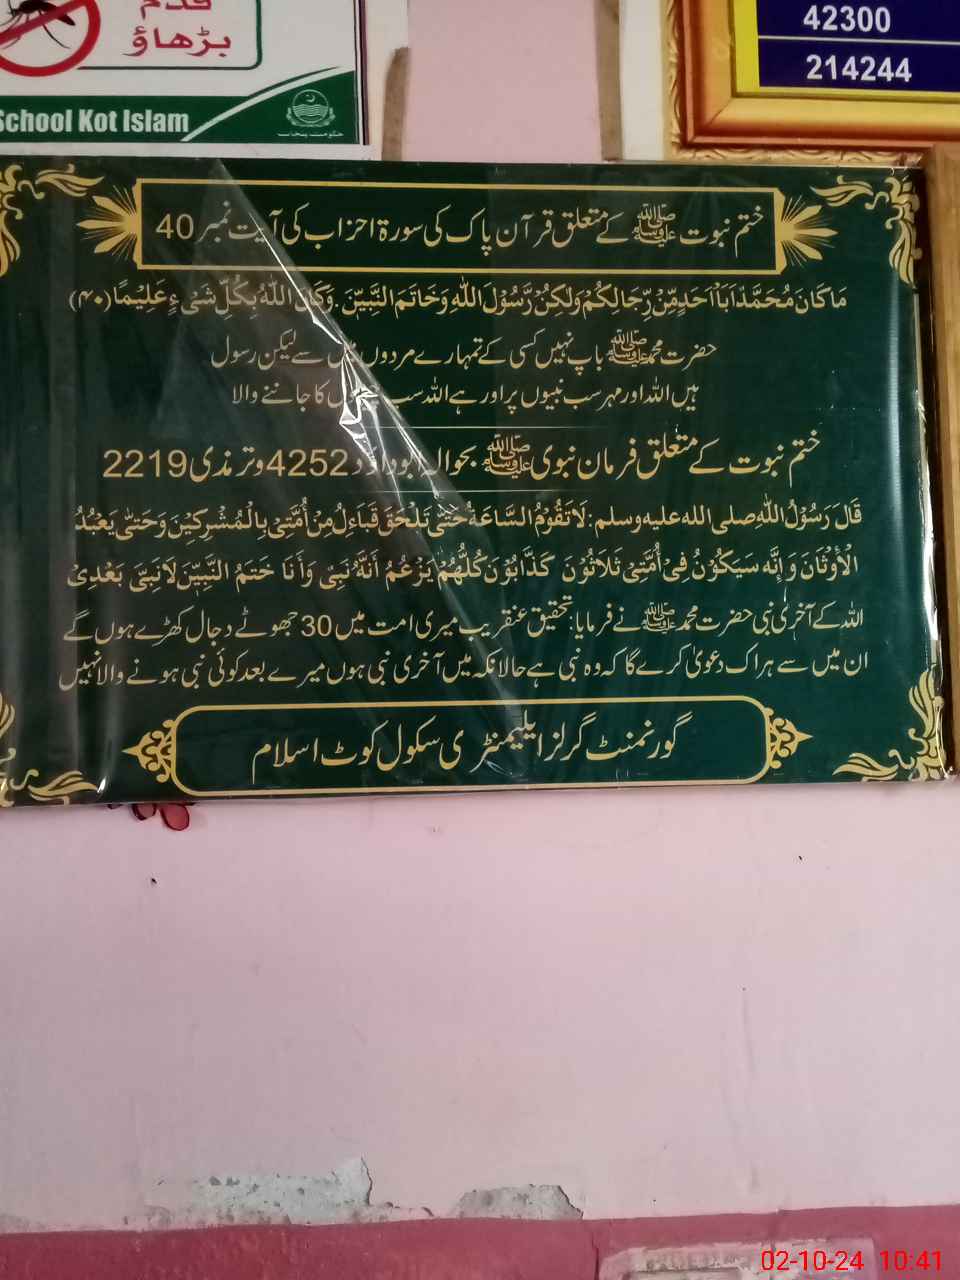 قدم
بڑھاؤ
School Kot Islam
حکومت پنجاب
42300
214244
ختم نبوت ﷺ کے متعلق قرآن پاک کی سورۃ احزاب کی آیت نمبر 40
مَا كَانَ مُحَمَّدٌ اَبَآ اَحَدٍ مِّنْ رِّجَالِكُمْ وَلٰكِنْ رَّسُوْلَ اللّٰهِ وَخَاتَمَ النَّبِيّٖنَ ۔ وَكَانَ اللّٰهُ بِكُلِّ شَىْءٍ عَلِيْمًا (۴۰)
حضرت محمد ﷺ باپ نہیں کسی کے تمہارے مردوں میں سے لیکن رسول
ہیں اللہ اور مہر سب نبیوں پر اور ہے اللہ سب کا جاننے والا
ختم نبوت کے متعلق فرمان نبوی ﷺ بحوالہ ابوداؤد 4252 و ترمذی 2219
قَالَ رَسُوْلُ اللّٰهِ صلى الله عليه وسلم: لَا تَقُوْمُ السَّاعَةُ حَتّٰى تَلْحَقَ قَبَاءِلُ مِنْ اُمَّتِىْ بِالْمُشْرِكِيْنَ وَحَتّٰى يَعْبُدُ
الْاَوْثَانَ وَاِنَّه سَيَكُوْنُ فِىْ اُمَّتِىْ ثَلَاثُوْنَ كَذَّابُوْنَ كُلُّهُمْ يَزْعُمُ اَنَّهُ نَبِىٌّ وَاَنَا خَتَمُ النَّبِيّٖنَ لَا نَبِىَّ بَعْدِىْ
اللہ کے آخری نبی حضرت محمد ﷺ نے فرمایا: تحقیق عنقریب میری امت میں 30 جھوٹے دجال کھڑے ہوں گے
ان میں سے ہر اک دعویٰ کرے گا کہ وہ نبی ہے حالانکہ میں آخری نبی ہوں میرے بعد کوئی نبی ہونے والا نہیں
گورنمنٹ گرلز ایلیمنٹری سکول کوٹ اسلام
02-10-24 10:41